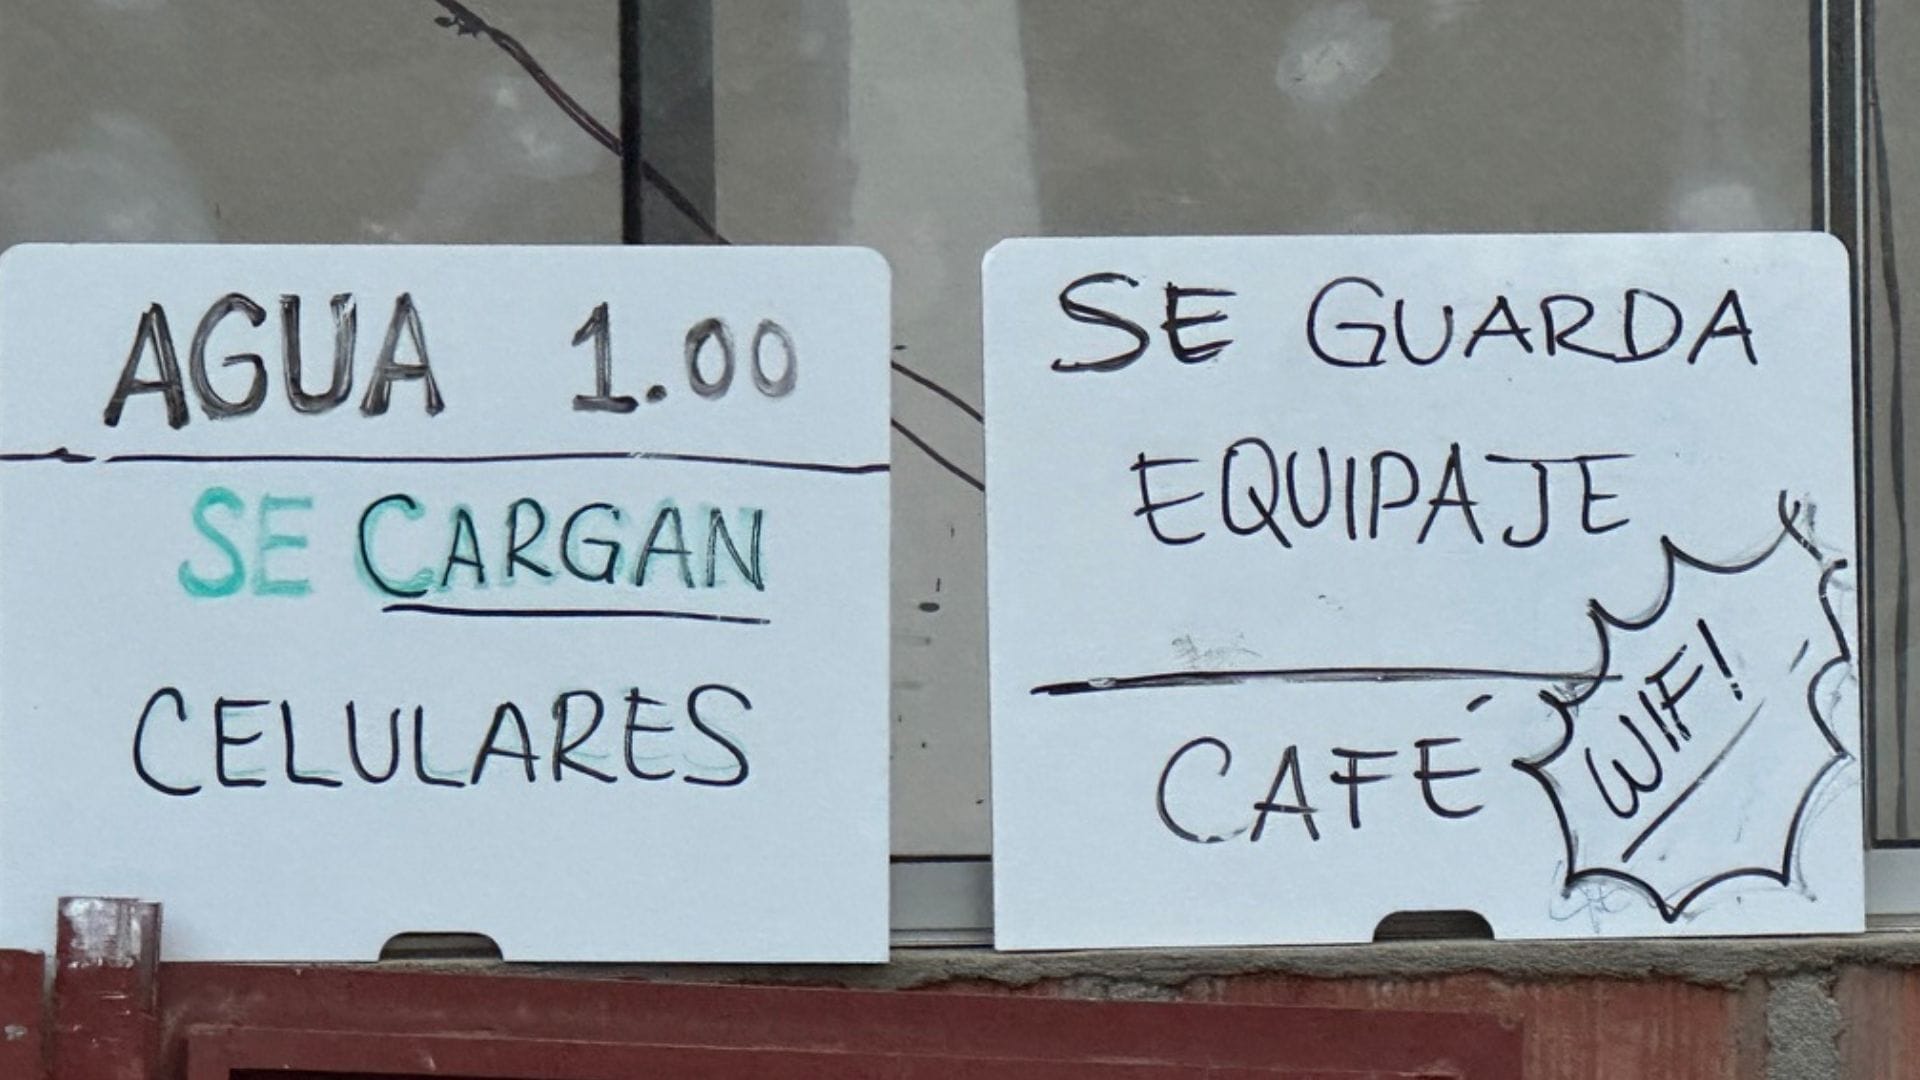 AGUA 1.00
SE CARGAN
CELULARES
SE GUARDA
EQUIPAJE
CAFÉ
WIF!